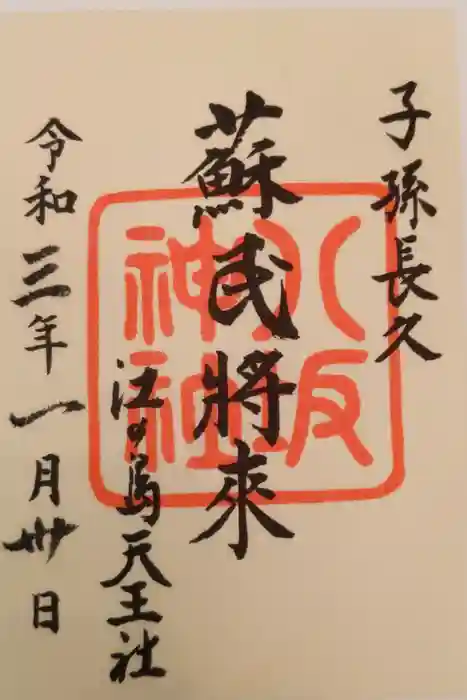 子孫長久
蘇民将来
江の島天王社
令和三年一月卅日
八坂神社